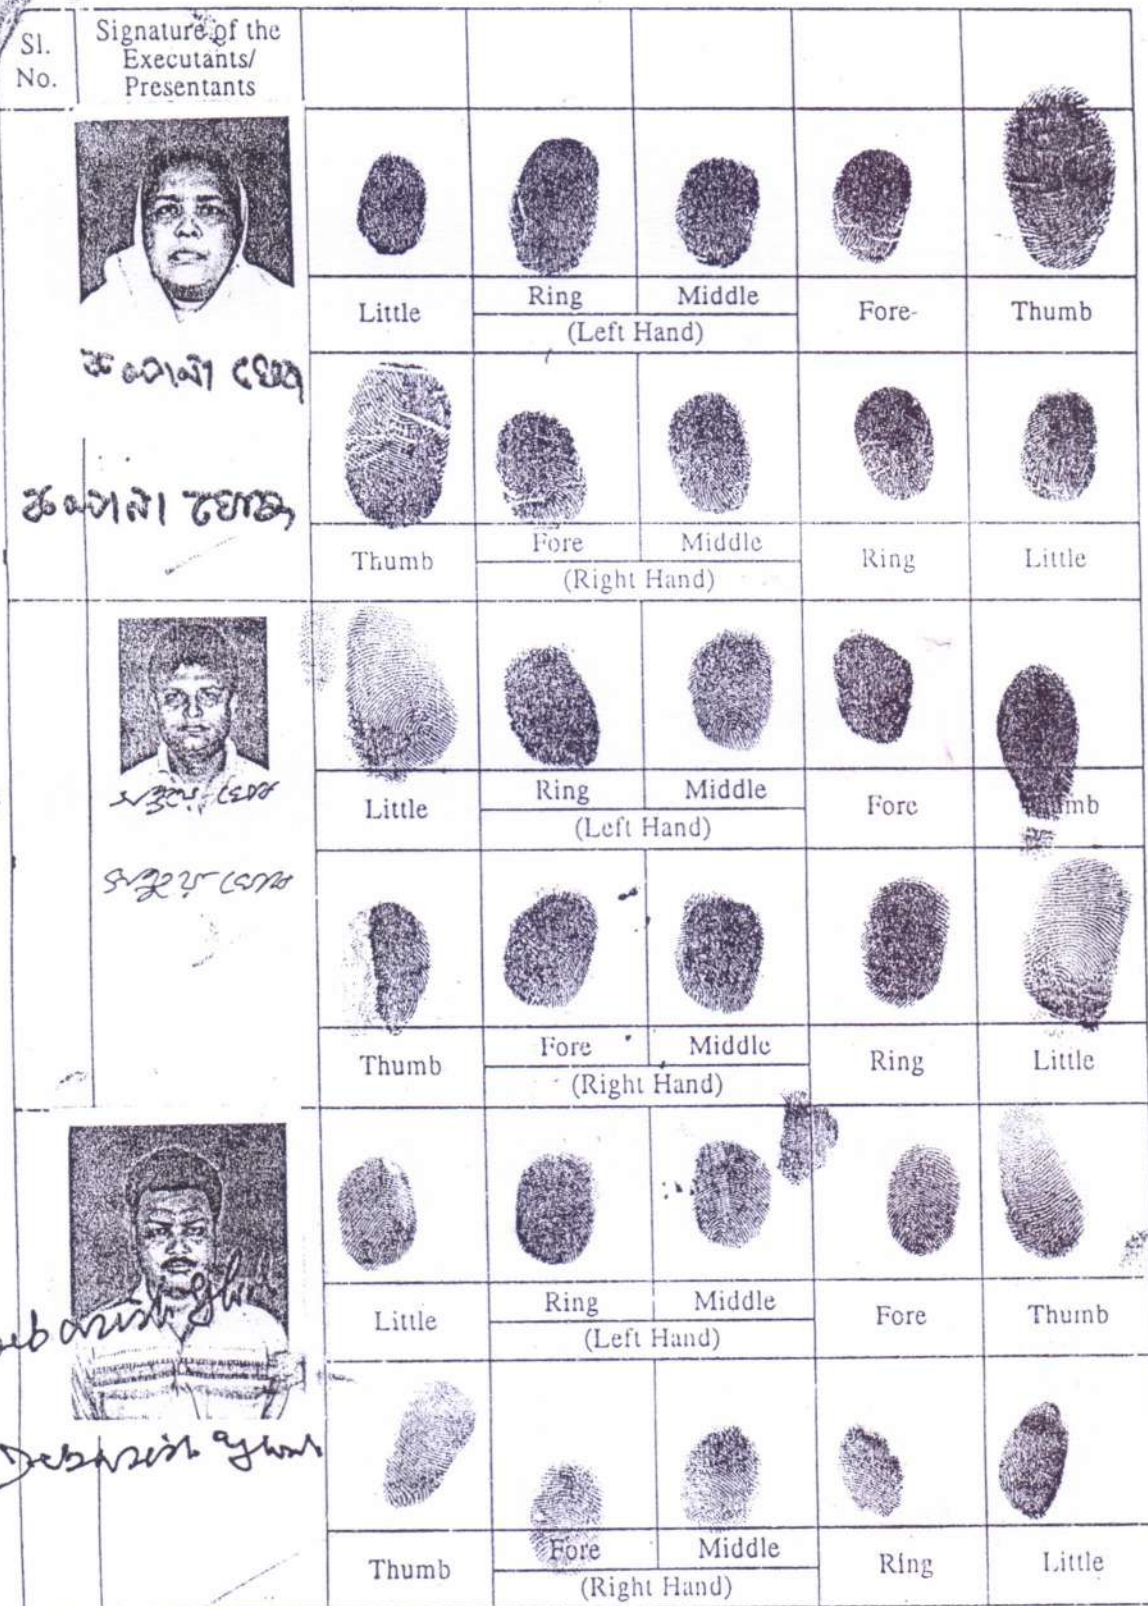 Sl. No.
Signature of the
Executants/
Presentants
Little Ring Middle Fore- Thumb
(Left Hand)
ঘোষ
ঘোষ
Thumb Fore Middle Ring Little
(Right Hand)
Little Ring Middle Fore Thumb
(Left Hand)
ঘোষ
ঘোষ
Thumb Fore Middle Ring Little
(Right Hand)
Little Ring Middle Fore Thumb
(Left Hand)
Debasish Ghosh
Debasish Ghosh
Thumb Fore Middle Ring Little
(Right Hand)